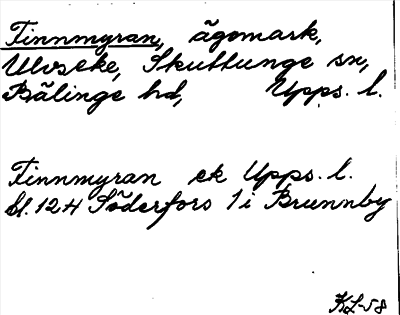 Finnmyran, ägomark,
Ulvseke, Skuttunge sn,
Bälinge hd, Upps. l.
Finnmyran ek Upps. l.
bl. 12 H Söderfors 1 i Brunnby
KL-58